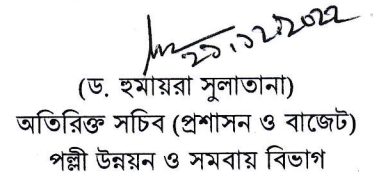 ২১.১২.২০২২
(ড. হুমায়রা সুলাতানা)
অতিরিক্ত সচিব (প্রশাসন ও বাজেট)
পল্লী উন্নয়ন ও সমবায় বিভাগ